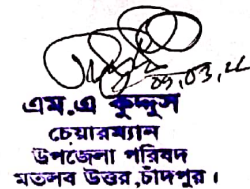 এম.এ কুদ্দুস
চেয়ারম্যান
উপজেলা পরিষদ
মতলব উত্তর, চাঁদপুর।